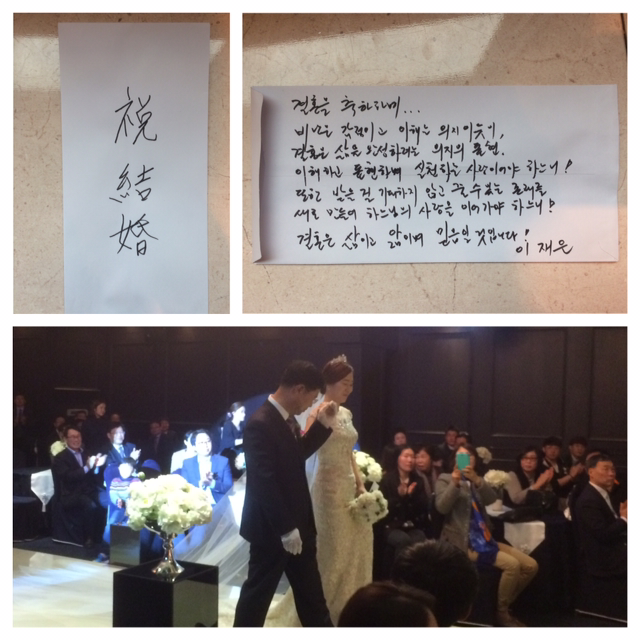 祝
結
婚
결혼을 축하하며...
비난은 감정이고 이해는 의지이듯이,
결혼은 삶을 완성하려는 의지의 표현.
이해하고 표현하며 실천하는 사랑이어야 하느니!
받은 걸 기억하지 않고 없는 존재를
새로 만들어 하느님의 사랑을 이어가야 하느니!
결혼은 삶이고 앎이며 믿음일 것입니다!
이재은